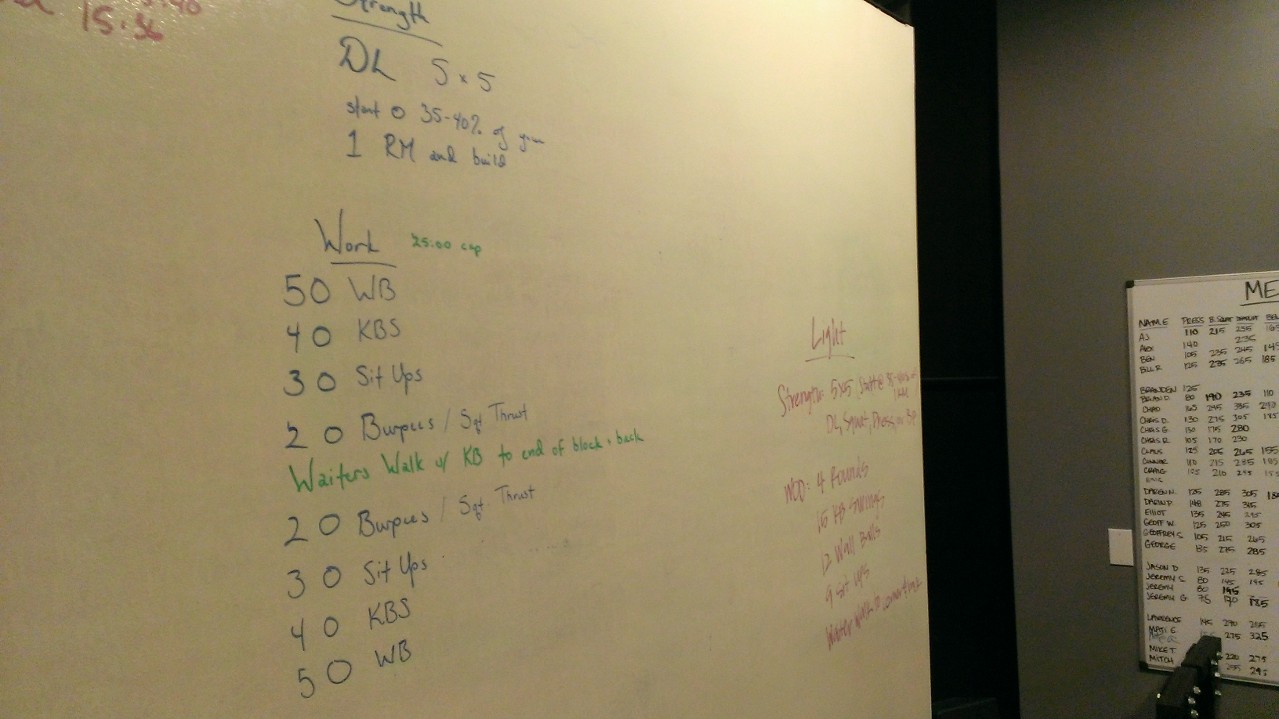 15:36
Strength
DL 5x5
start @ 35-40% of your
1 RM and build
Work 25:00 cap
50 WB
40 KBS
30 Sit Ups
20 Burpees / Sqt Thrust
Waiters Walk w/ KB to end of block + back
20 Burpees / Sqt Thrust
30 Sit Ups
40 KBS
50 WB
Light
Strength: 5x5, Start @
DL, Squat, Press,
WOD: 4 Rounds
15 KB Swings
12 Wall Balls
9 Sit Ups
Waiter Walk
ME
NAME PRESS B.SQUAT
AJ 110 215 235
ALEX 140 235
BEN 105 235 245 145
BILL R 125 235 265 185
BRANDEN 125
BRIAN D. 80 190 235 110
CHAD 245 335
CHRIS D. 130 275 305
CHRIS G. 130 175 280
CHRIS R. 105 170 230
125 205 265 155
CONNOR 110 215 285
CRAIG 105 210
DARREN N. 125 285 305
DARIN P. 275
ELLIOT 135
GEOFF W. 125 250 305
GEOFFREY S. 105 215 265
GEORGE 275 285
JASON D 135 225 285
JEREMY C. 80 145
JEREMY 80 195
JEREMY G. 75 185
LAWRENCE
MATT E 275 325
MIKE T 220 275
MITCH